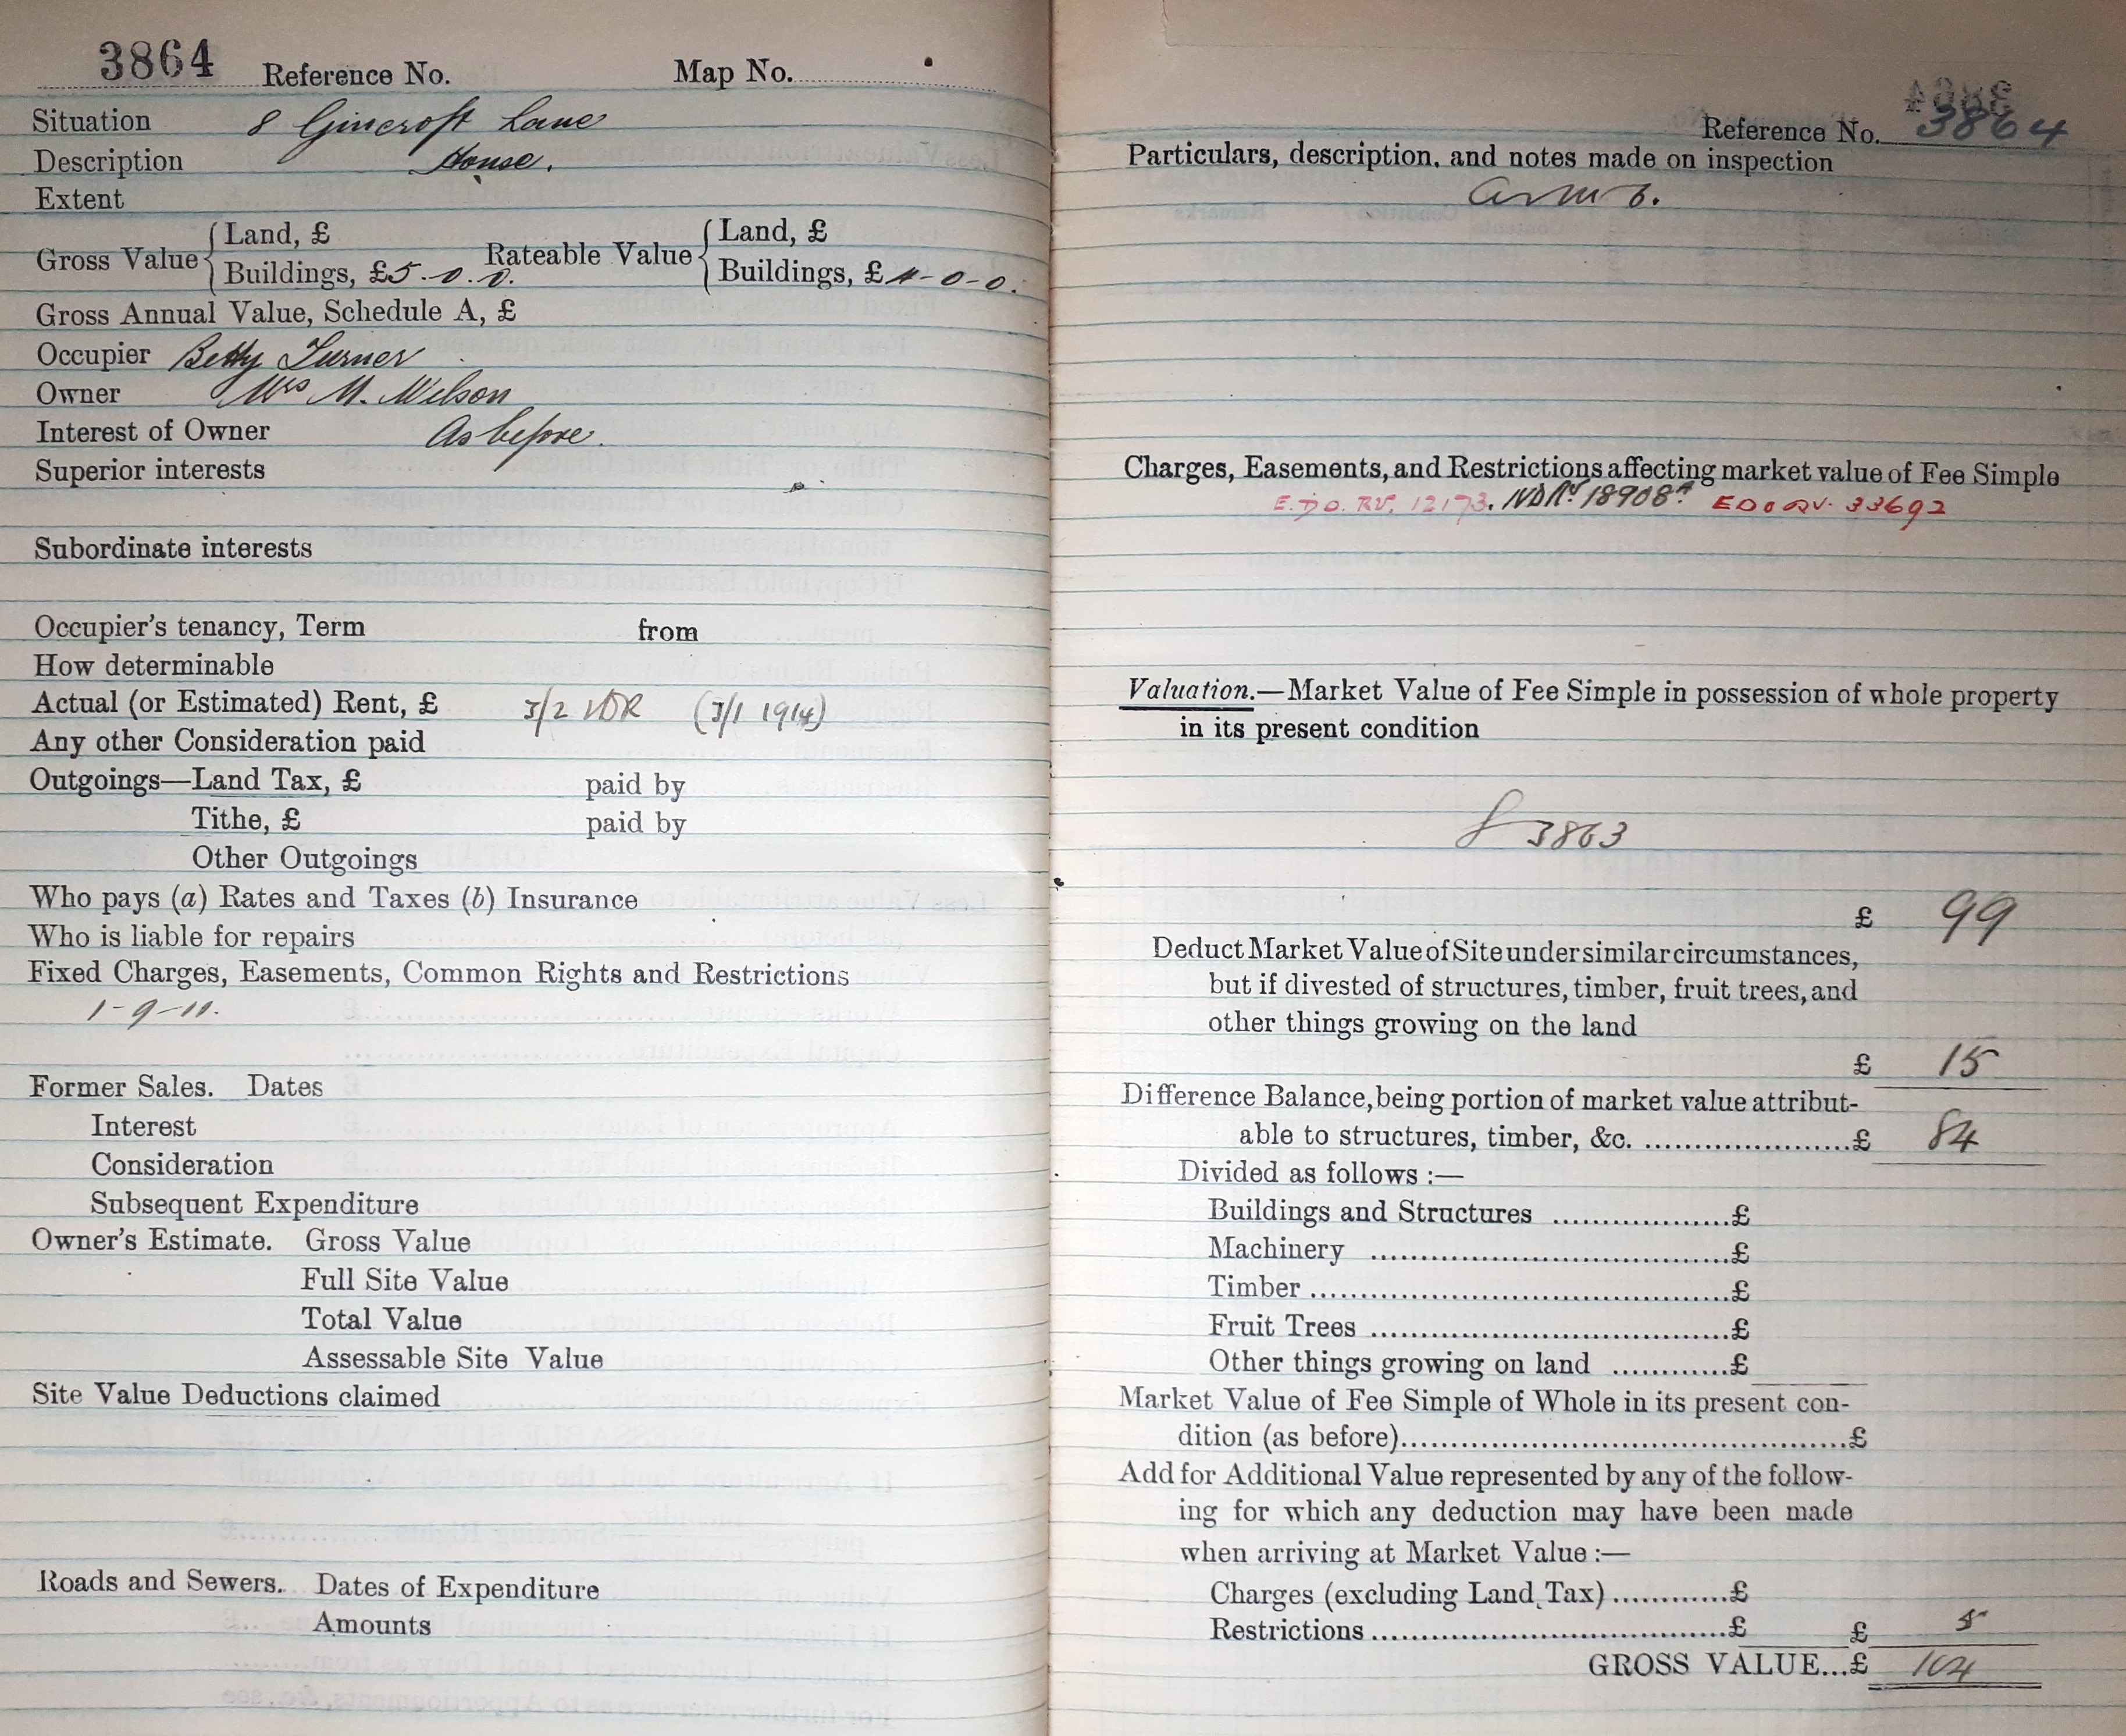 3864 Reference No. Map No.
Situation 8 Gincroft Lane
Description House.
Extent
Gross Value Land, £ Rateable Value Land, £
Buildings, £5-0-0. Buildings, £4-0-0.
Gross Annual Value, Schedule A, £
Occupier Betty Turner
Owner Mrs M. Wilson
Interest of Owner As before.
Superior interests
Subordinate interests
Occupier's tenancy, Term from
How determinable
Actual (or Estimated) Rent, £ 3/2 NDR (3/1 1914)
Any other Consideration paid
Outgoings—Land Tax, £ paid by
Tithe, £ paid by
Other Outgoings
Who pays (a) Rates and Taxes (b) Insurance
Who is liable for repairs
Fixed Charges, Easements, Common Rights and Restrictions
1-9-11.
Former Sales. Dates
Interest
Consideration
Subsequent Expenditure
Owner's Estimate. Gross Value
Full Site Value
Total Value
Assessable Site Value
Site Value Deductions claimed
Roads and Sewers. Dates of Expenditure
Amounts
Reference No. 3864
Particulars, description, and notes made on inspection
Charges, Easements, and Restrictions affecting market value of Fee Simple
E.D.O. RV. 12173. NDRV 18908A EDO RV. 33692
Valuation.—Market Value of Fee Simple in possession of whole property
in its present condition
3863
£ 99
Deduct Market Value of Site under similar circumstances,
but if divested of structures, timber, fruit trees, and
other things growing on the land
£ 15
Difference Balance, being portion of market value attribut-
able to structures, timber, &c. ....................£ 84
Divided as follows :—
Buildings and Structures ..................£
Machinery ....................................£
Timber ..........................................£
Fruit Trees ....................................£
Other things growing on land ............£
Market Value of Fee Simple of Whole in its present con-
dition (as before)............................................£
Add for Additional Value represented by any of the follow-
ing for which any deduction may have been made
when arriving at Market Value :—
Charges (excluding Land Tax) ............£
Restrictions ....................................£ £ 5
GROSS VALUE...£ 104